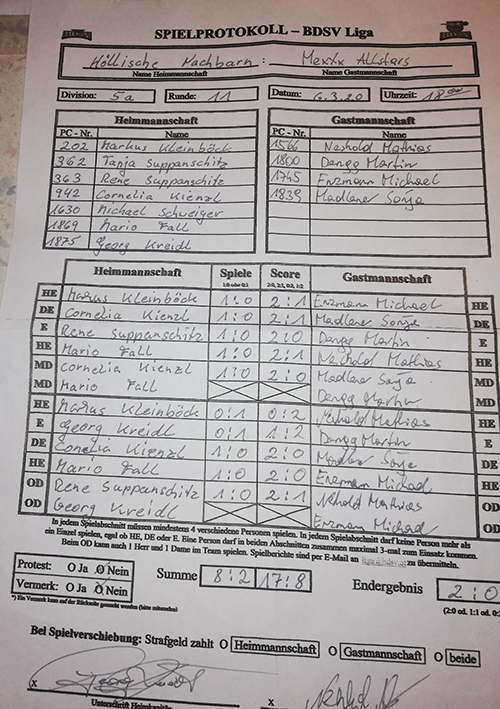 SPIELPROTOKOLL – BDSV Liga
Höllische Nachbarn : Mexxx Allstars
Name Heimmannschaft Name Gastmannschaft
Division: 5a Runde: 11 Datum: 6.3.20 Uhrzeit: 18 00
Heimmannschaft Gastmannschaft
PC - Nr. Name PC - Nr. Name
202 Markus Kleinböck 1566 Neshold Mathias
362 Tanja Suppanschitz 1800 Dangg Martin
363 Rene Suppanschitz 1745 Enzmann Michael
942 Cornelia Kienzl 1839 Madlener Sonja
1630 Michael Schweiger
1869 Mario Fall
1875 Georg Kreidl
Heimmannschaft Spiele Score Gastmannschaft
1:0 oder 0:1 2:0, 2:1, 0:2, 1:2
HE Markus Kleinböck 1:0 2:1 Enzmann Michael HE
DE Cornelia Kienzl 1:0 2:1 Madlener Sonja DE
E Rene Suppanschitz 1:0 2:0 Dangg Martin E
HE Mario Fall 1:0 2:1 Neshold Mathias HE
MD Cornelia Kienzl 1:0 2:0 Madlener Sonja MD
MD Mario Fall Dangg Martin MD
HE Markus Kleinböck 0:1 0:2 Neshold Mathias HE
E Georg Kreidl 0:1 1:2 Dangg Martin E
DE Cornelia Kienzl 1:0 2:0 Madlener Sonja DE
HE Mario Fall 1:0 2:0 Enzmann Michael HE
OD Rene Suppanschitz 1:0 2:1 Neshold Mathias OD
OD Georg Kreidl Enzmann Michael OD
In jedem Spielabschnitt müssen mindestens 4 verschiedene Personen spielen. In jedem Spielabschnitt darf keine Person mehr als
ein Einzel spielen, egal ob HE, DE oder E. Eine Person darf in beiden Abschnitten zusammen maximal 3-mal zum Einsatz kommen.
Beim OD kann auch 1 Herr und 1 Dame im Team spielen. Spielberichte sind per E-Mail an zu übermitteln.
Protest: O Ja O Nein Summe 8:2 17:8 Endergebnis 2:0
Vermerk: O Ja O Nein
*) Ein Vermerk kann auf der Rückseite gemacht werden (bitte mitsenden) (2:0 od. 1:1 od. 0:2
Bei Spielverschiebung: Strafgeld zahlt O Heimmannschaft O Gastmannschaft O beide
x x
Unterschrift Heimkapitän